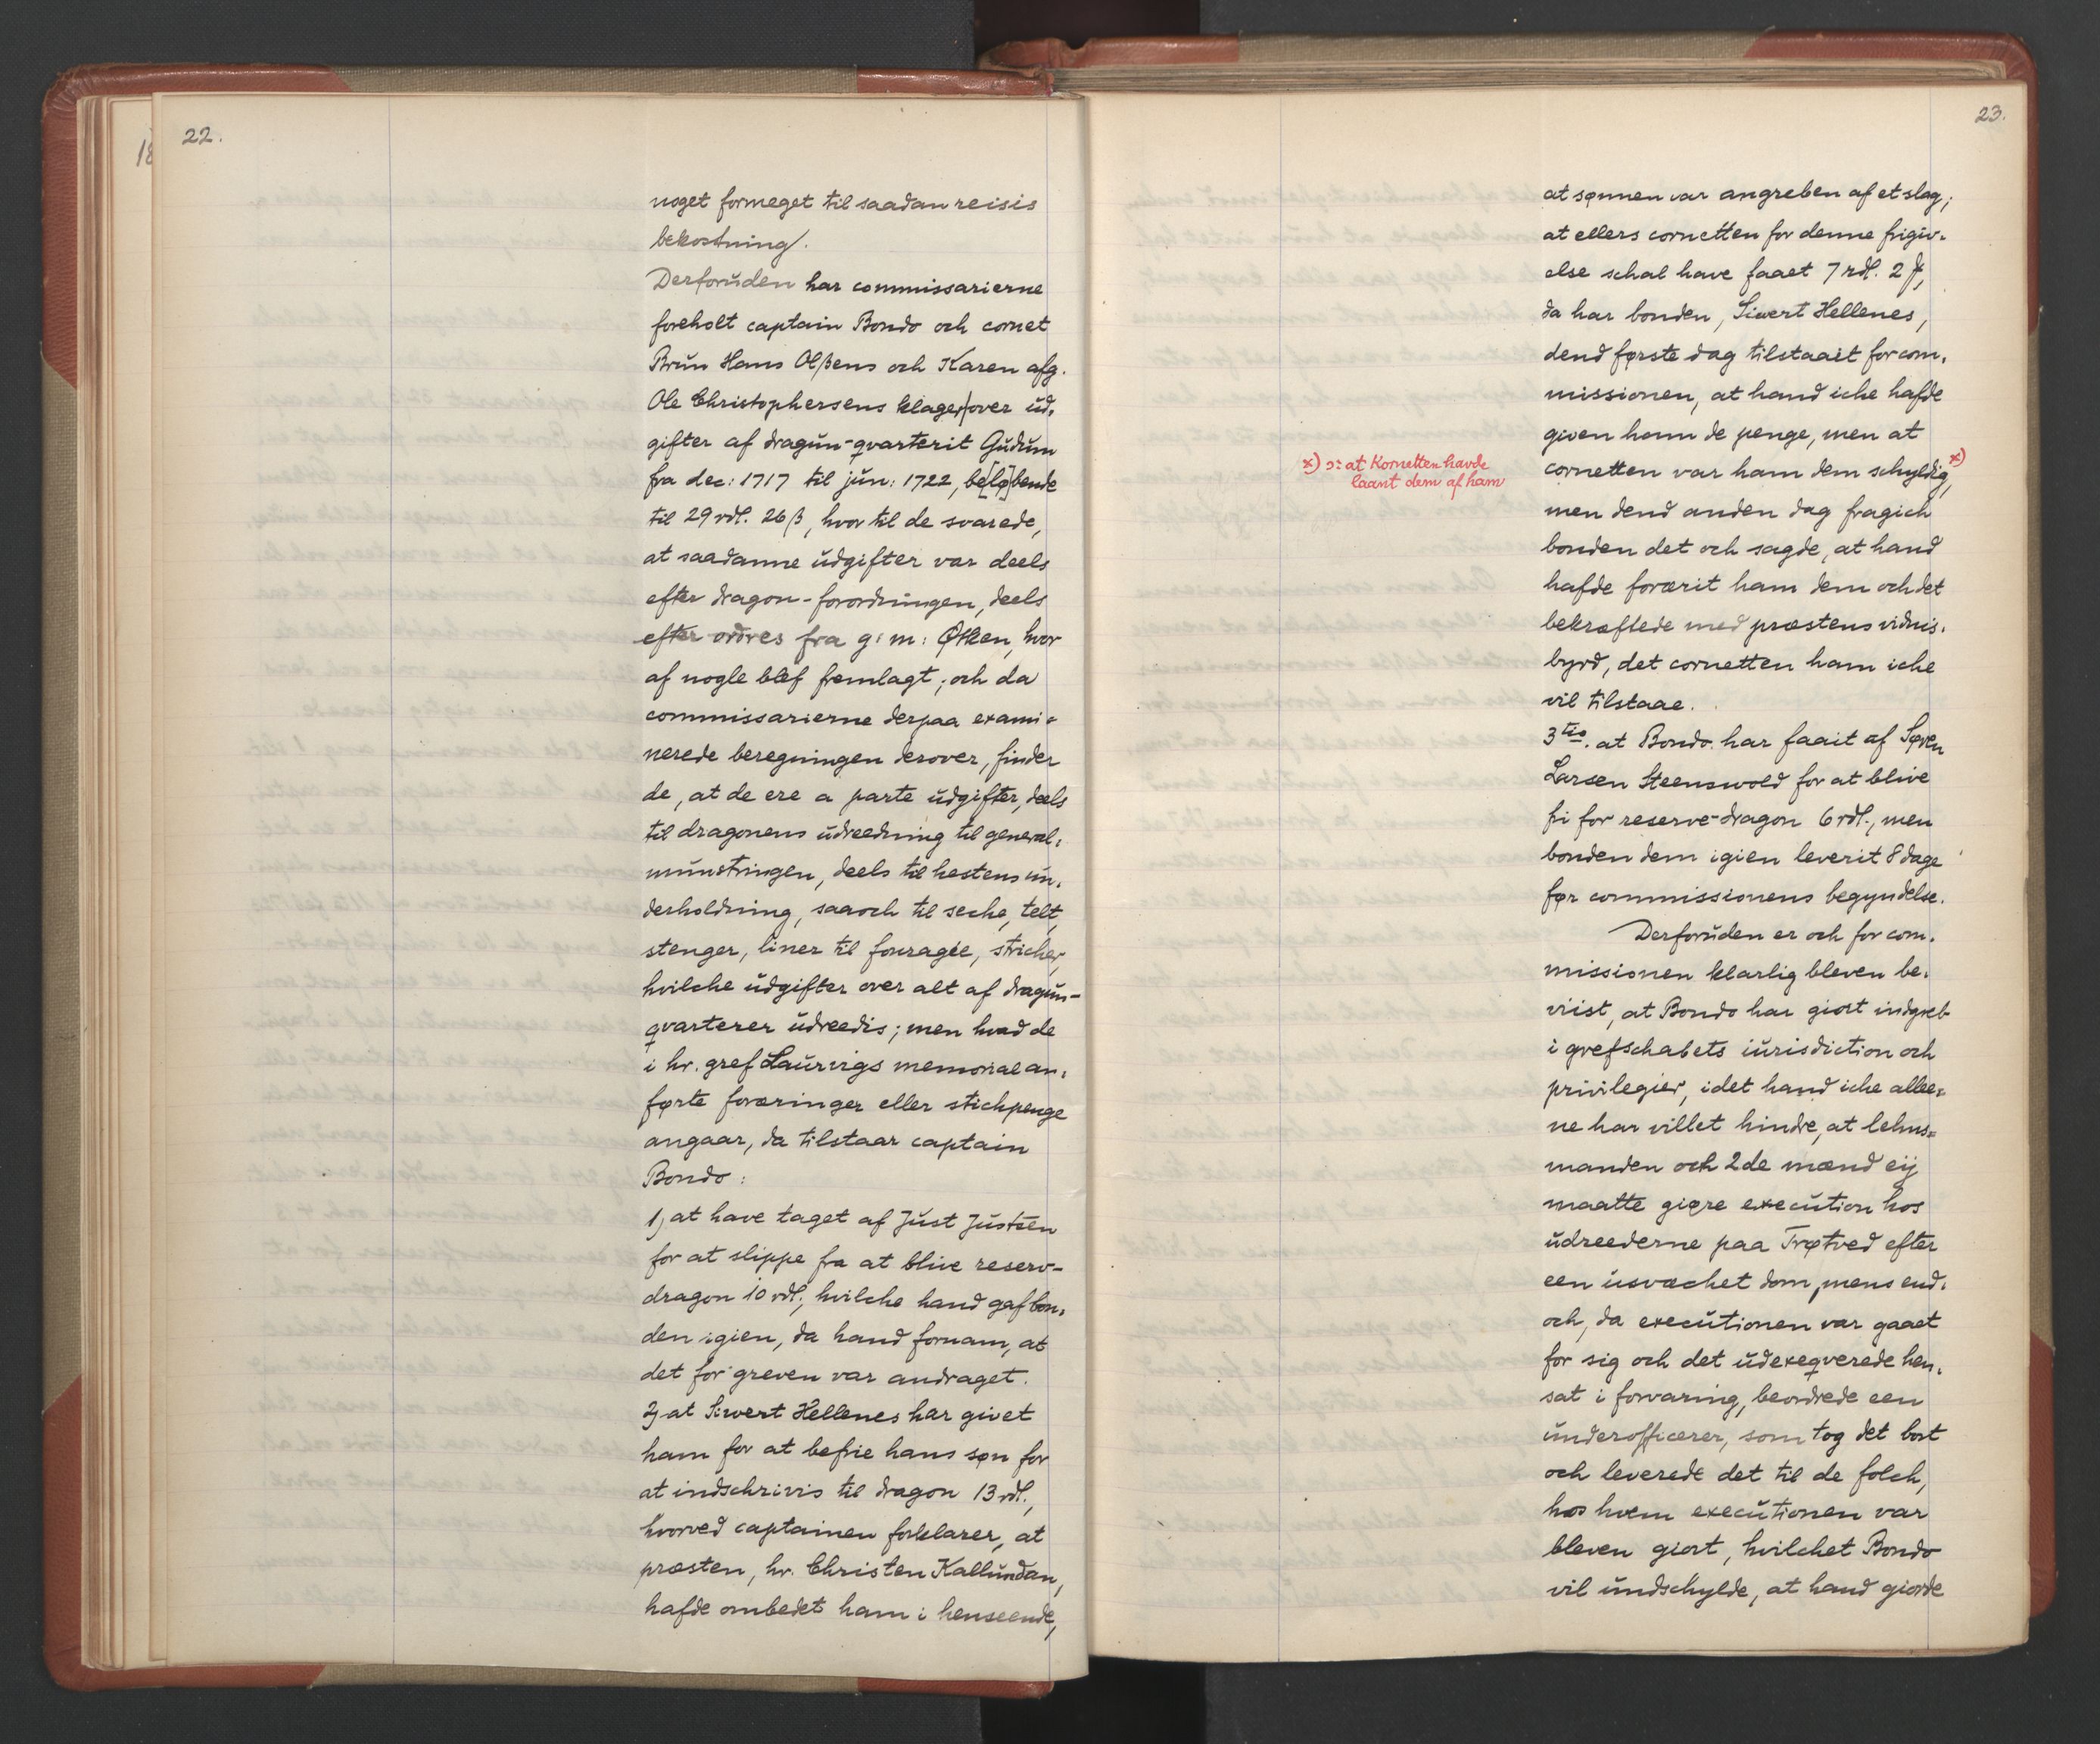 22.
noget formeget til saadan reisis
bekostning/.
Derforŭden har commissarierne
foreholt captain Bondo och cornet
Brŭn Hans Olßens och Karen afg.
Ole Christophersens klager over ŭd-
gifter af dragŭn-qvarterit Gŭdŭm
fra dec: 1717 til jŭn: 1722, be[lø]bende
til 29 rdl. 26 β, hvor til de svarede,
at saadanne ŭdgifter var deels
efter dragon-forordningen, deels
efter ordres fra g: m: Øtken, hvor
af nogle blef fremlagt; och da
commissarierne derpaa exami-
nerede beregningen derover, finder
de, at de ere a parte ŭdgifter, deels
til dragonens ŭdreedning til general-
mŭnstringen, deels til hestens ŭn-
derholdning, saa och til seche, telt,
stenger, liner til fouragée, stricher,
hvilche ŭdgifter over alt af dragŭn-
qvarterer ŭdreedis; men hvad de
i hr. gref Laŭrvigs memorial an-
førte foræringer eller stichpenge
angaar, da tilstaar captain
Bondo:
1) at have taget af Jŭst Jŭstsen
for at slippe fra at blive reserv-
dragon 10 rdl., hvilche hand gaf bon-
den igien, da hand fornam, at
det for greven var andraget.
2) at Sivert Hellenes har givet
ham for at befrie hans søn for
at indschrivis til dragon 13 rdl.,
hvorved captainen forklarer, at
præsten, hr. Christen Kallŭndan,
hafde ombedet ham i henseende,
23.
at sønnen var angreben af et slag;
at ellers cornetten for denne frigiv-
else schal have faaet 7 rdl. 2 ₰,
da har bonden, Sivert Hellenes,
dend første dag tilstaait for com-
missionen, at hand iche hafde
given ham de penge, men at
cornetten var ham dem schyldig, x)
x) ɔ: at Kornetten havde
laant dem af ham
men dend anden dag fragich
bonden det och sagde, at hand
hafde foræerit ham dem och det
bekræftede med præstens vidnis-
byrd, det cornetten ham iche
vil tilstaae.
3tio. at Bondo har faait af Søren
Larsen Steenswold for at blive
fri for reserve-dragon 6 rdl., men
bonden dem igien leverit 8 dage
før commissionens begyndelse.
Derforŭden er och for com-
missionen klarlig bleven be-
viist, at Bondo har giort indgreb
i grefschabets iŭrisdiction och
privilegier, idet hand iche allee-
ne har villet hindre, at lehns-
manden och 2de mænd eij
maatte giøre execŭtion hos
ŭdreederne paa Trøtved efter
een ŭsvæchet dom, mens end-
och, da execŭtionen var gaaet
for sig och det ŭdexeqverede hen-
sat i forvaring, beordrede een
ŭnderofficerer, som tog det bort
och leverede det til de folch,
hos hvem execŭtionen var
bleven giort, hvilchet Bondo
vil ŭndschylde, at hand giorde